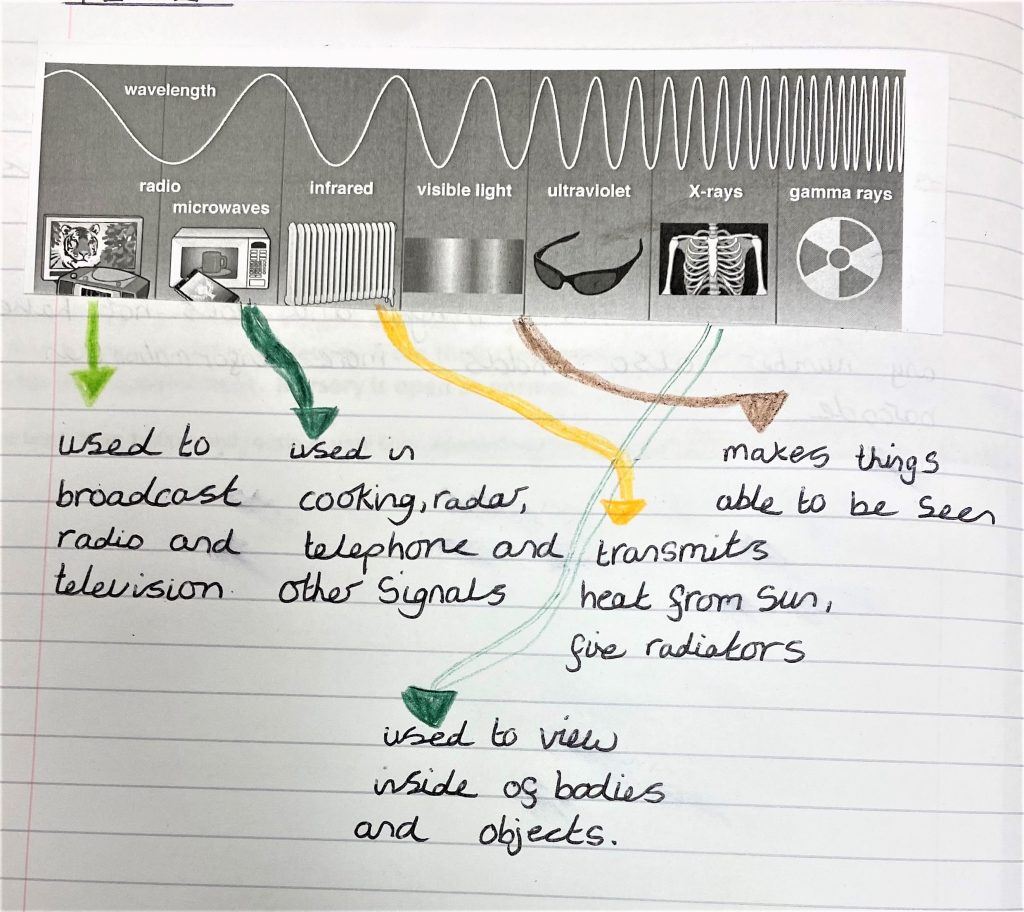 wavelength
radio
microwaves
infrared
visible light
ultraviolet
X-rays
gamma rays
used to
broadcast
radio and
television.
used in
cooking, radar,
telephone and
other signals
transmits
heat from sun,
fire radiators
makes things
able to be seen
used to view
inside of bodies
and objects.